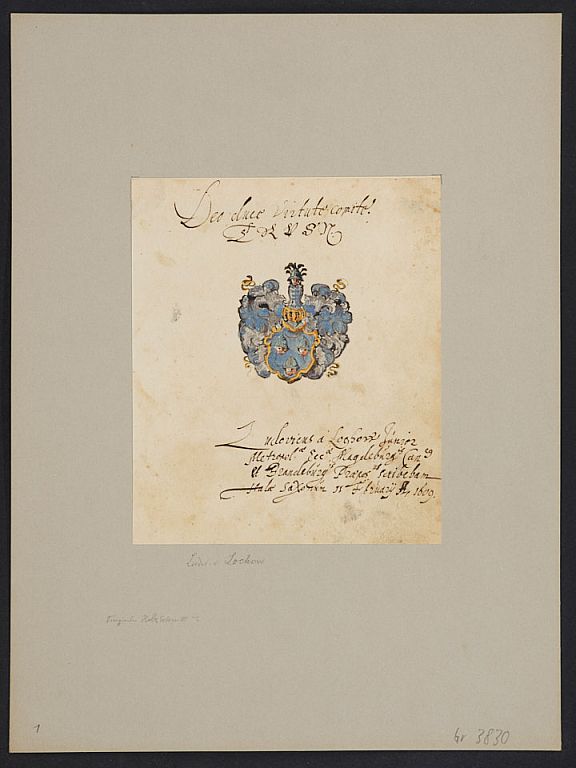 Deo duce Virtute comite.
Ludovicus á Lochow Junior
Metropol: Ecc Magdeburg Can
et Brandeburg Præpo scribebam
Halæ Saxonum 11 Februarij Ao 1609.
Ludw. v. Lochow
1
hr 3830